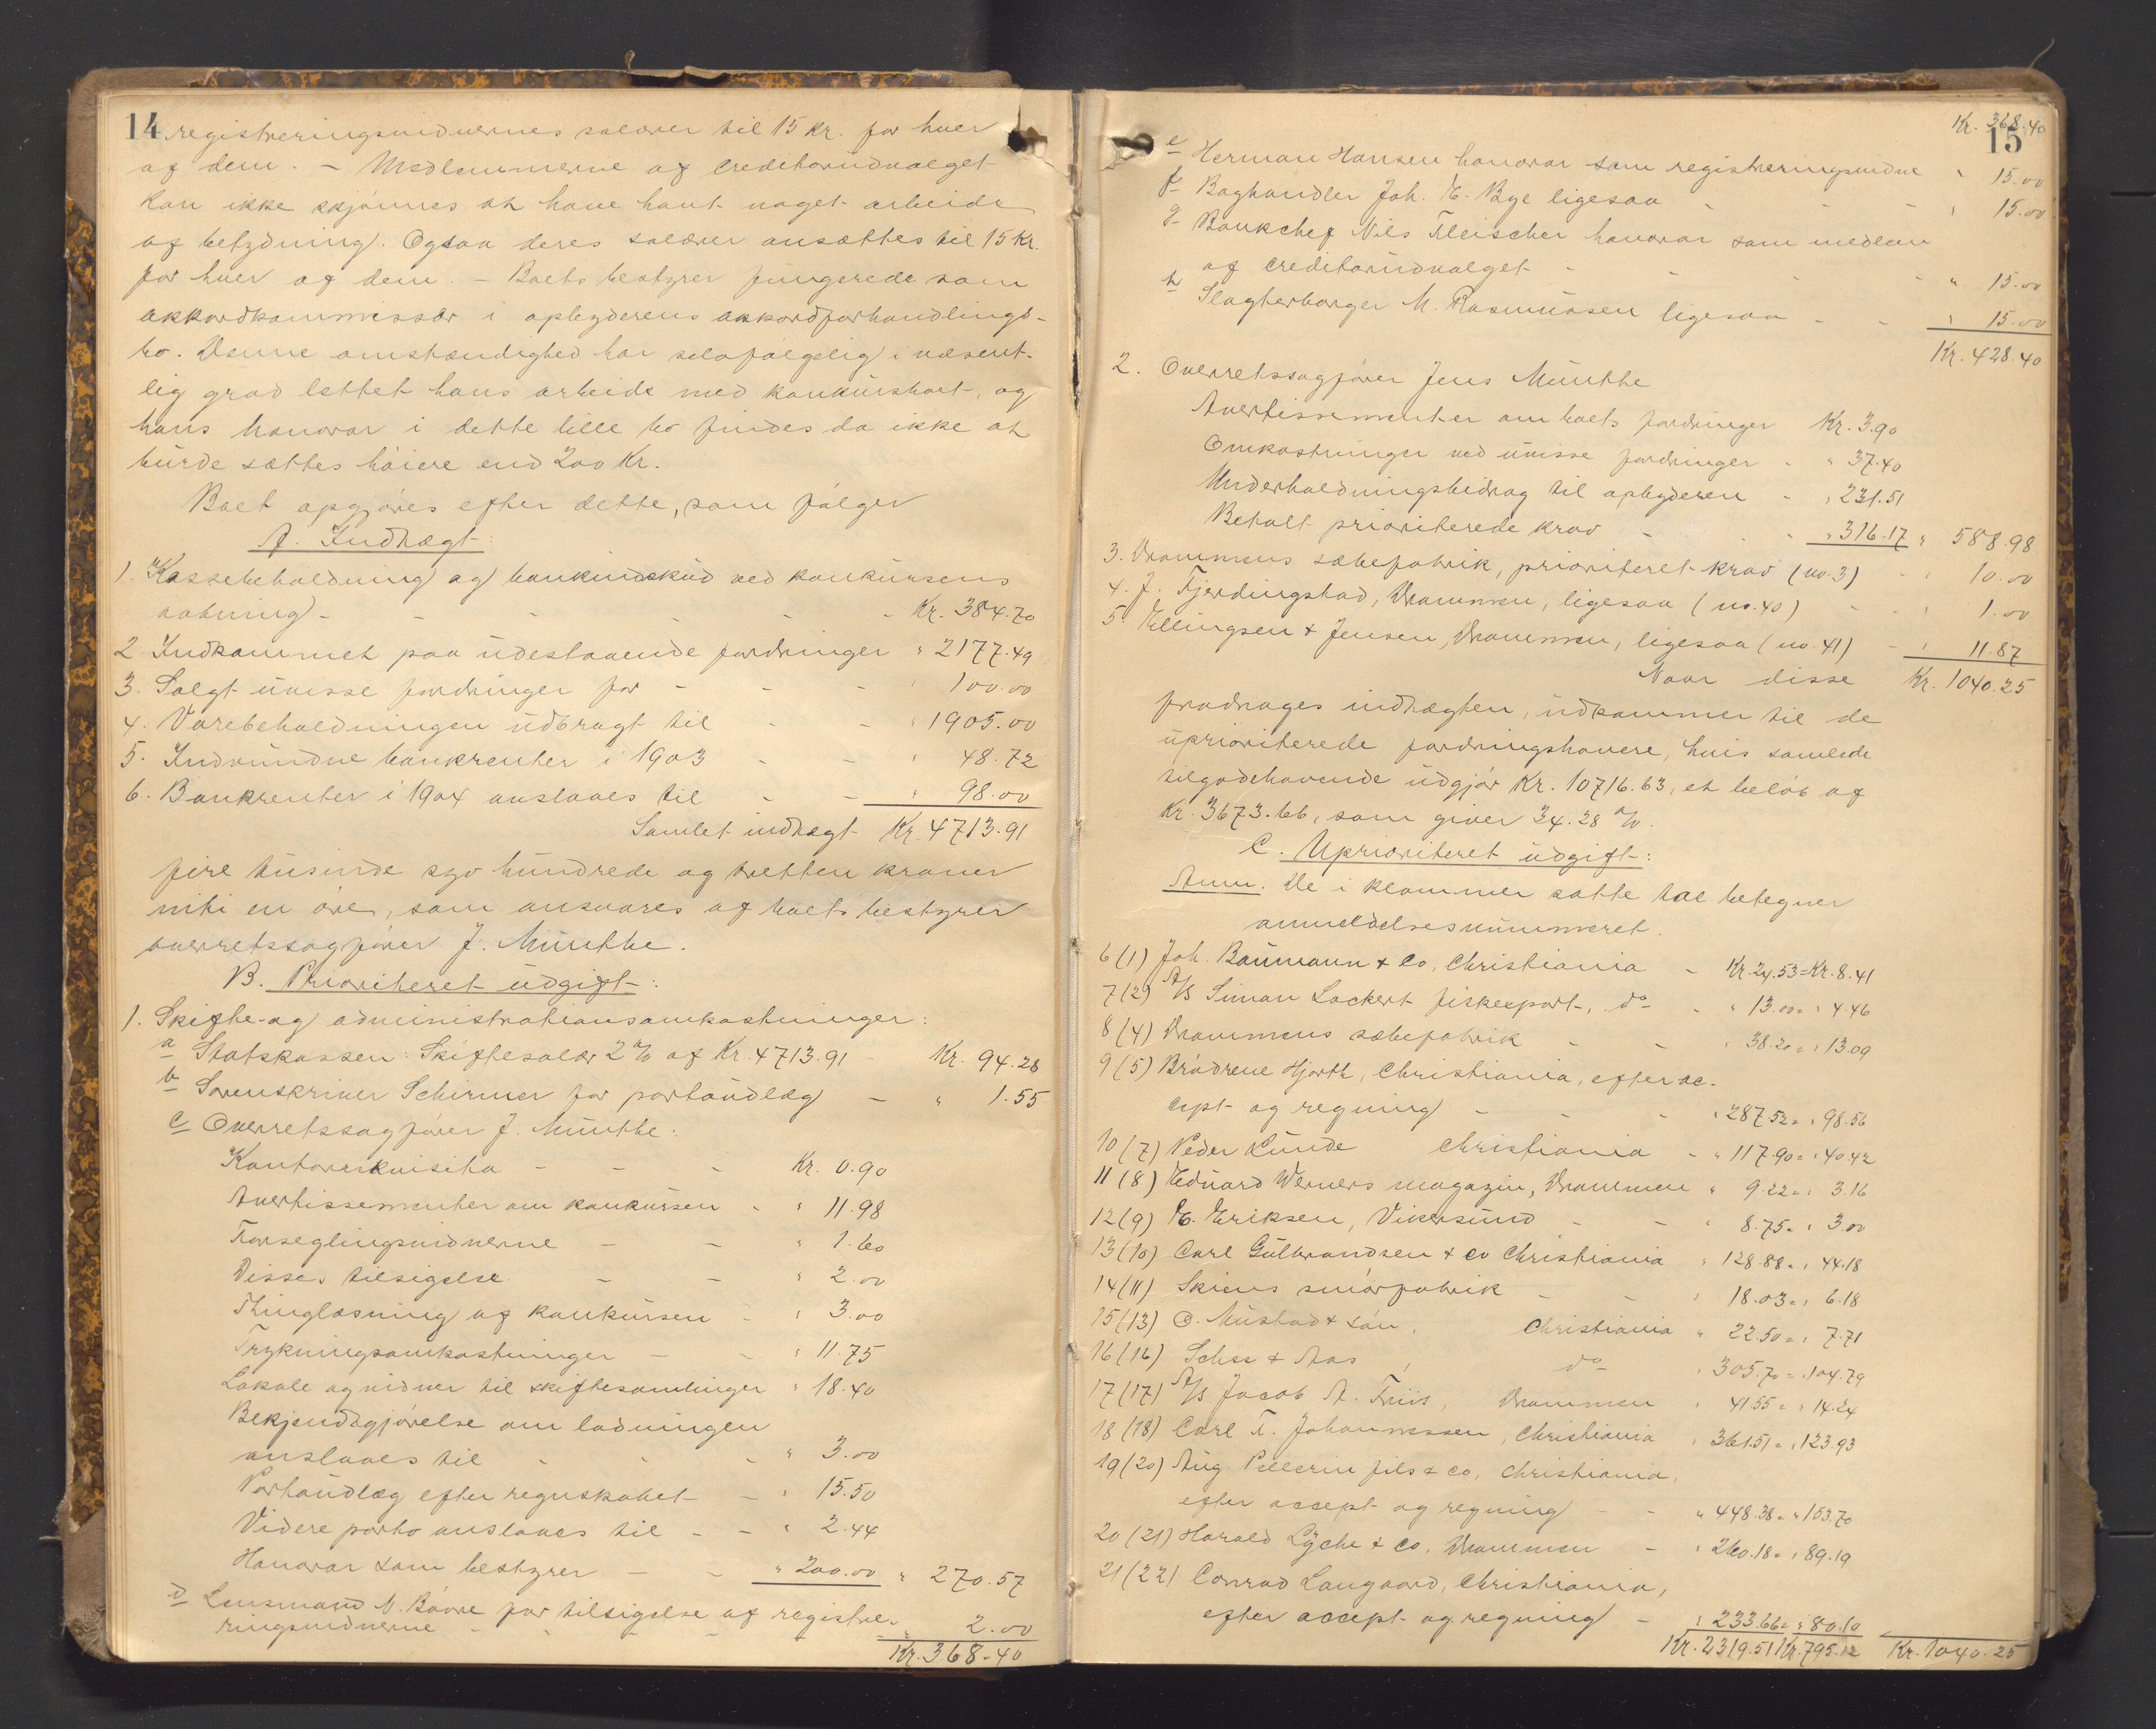 14 registreringsvidnernes salærer til 15 kr. for hver
af dem. – Medlemmerne af creditorudvalget
kan ikke skjønnes at have havt noget arbeide
af betydning. Ogsaa deres salærer ansættes til 15 Kr.
for hver af dem. – Boets bestyrer fungerede som
akkordkommissær i opbyderens akkordforhandlings-
bo. Denne omstændighed har selvfølgelig i væsent-
lig grad lettet hans arbeide med konkursboet, og
hans honorar i dette lille bo findes da ikke at
burde sættes høiere end 200 Kr.
Boet opgjøres efter dette, som følger
A. Indtægt:
1. Kassebeholdning og bankindskud ved konkursens
aabning - - - - - Kr. 384.70
2 Indkommet paa udestaaende fordringer " 2177.49
3. Solgt uvisse fordringer for - - - " 100.00
4. Varebeholdningen udbragt til - - " 1905.00
5. Indvundne bankrenter i 1903 - - " 48.72
6. Bankrenter i 1904 anslaaes til - - " 98.00
Samlet indtægt Kr. 4713.91
fire tusinde syv hundrede og tretten kroner
niti en øre, som ansvares af boets bestyrer
overretssagfører J. Münthe.
B. Prioriteret udgift:
1. Skifte- og administrationsomkostninger:
a Statskassen: Skiftesalær 2 % af Kr. 4713.91 - Kr. 94.28
b Sorenskriver Schirmer for portoudlæg - " 1.55
c Overretssagfører J. Münthe:
Kontorrekvisita - - - Kr. 0.90
Avertissementer om konkursen - " 11.98
Forseglingsvidnerne - - " 1.60
Disses tilsigelse - - " 2.00
Thinglæsning af konkursen - " 3.00
Trykningsomkostninger - - " 11.75
Lokale og vidner til skiftesamlinger " 18.40
Bekjendtgjørelse om lodningen
anslaaes til - - - " 3.00
Portoudlæg efter regnskabet - " 15.50
Videre porto anslaaes til - - " 2.44
Honorar som bestyrer - - " 200.00 " 270.57
d Lensmand N. Bøvre for tilsigelse af registre-
ringsvidnerne - - - - - " 2.00
Kr. 368.40
Kr. 368.40
15
e Herman Hansen honorar som registreringsvidne " 15.00
f Baghandler Joh. E. Bye ligesaa - - - " 15.00
g Bankchef Nils Fleischer honorar som medlem
af creditorudvalget - - - - " 15.00
h Slagterborger M. Rasmussen ligesaa - - " 15.00
Kr. 428.40
2. Overretssagfører Jens Münthe
Avertissementer om boets fordringer Kr. 3.90
Omkostninger ved uvisse fordringer - " 37.40
Underholdningsbidrag til opbyderen - " 231.51
Betalt prioriterede krav - - " 316.17 " 588.98
3. Drammens sæbefabrik, prioriteret krav (no. 3) - " 10.00
4. J. Fjerdingstad, Drammen, ligesaa (no. 40) - - " 1.00
5. Ellingsen & Jensen, Drammen, ligesaa (no. 41) - " 11.87
Naar disse Kr. 1040.25
fradrages indtægten, udkommer til de
uprioriterede fordringshavere, hvis samlede
tilgodehavende udgjør Kr. 10716.63, et beløb af
Kr. 3673.66, som giver 34.28 %.
C. Uprioriteret udgift:
Anm. De i klammer satte tal betegner
anmeldelsesnummeret.
6 (1) Joh. Baumann & Co, Christiania - Kr. 24.53 = Kr. 8.41
7 (2) A/S Simon Lockert fiskexport, do - " 13.00 = " 4.46
8 (4) Drammens sæbefabrik - - " 38.20 = " 13.09
9 (5) Brødrene Hjorth, Christiania, efter ac-
cept og regning - - - " 287.52 = " 98.56
10 (7) Peder Kunde Christiania - " 117.90 = " 40.42
11 (8) Eduard Werners magazin, Drammen " 9.22 = " 3.16
12 (9) E. Eriksen, Vikersund - - " 8.75 = " 3.00
13 (10) Carl Gulbrandsen & Co Christiania " 128.88 = " 44.18
14 (11) Skiens smørfabrik - - " 18.03 = " 6.18
15 (13) O. Mustad & Søn, Christiania " 22.50 = " 7.71
16 (16) & Aas, do " 305.70 = " 104.79
17 (17) A/S Jacob A. Friis, Drammen " 41.55 = " 14.24
18 (18) Carl F. Johannessen, Christiania " 361.51 = " 123.93
19 (20) Aug. Pellerin fils & co, Christiania,
efter accept og regning - - " 448.38 = " 153.70
20 (21) Harald Lyche & Co, Drammen - " 260.18 = " 89.19
21 (22) Conrad Langaard, Christiania,
efter accept og regning - " 233.66 = " 80.10
Kr. 2319.51 Kr. 795.12 Kr. 1040.25